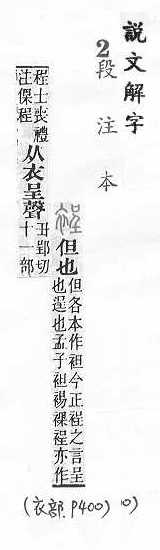 說文解字
2段注本
裎但也但各本作袒今正裎之言呈
也逞也孟子袒裼裸裎亦作
程士喪禮
注倮程从衣呈聲丑郢切
十一部
(衣部.P400)